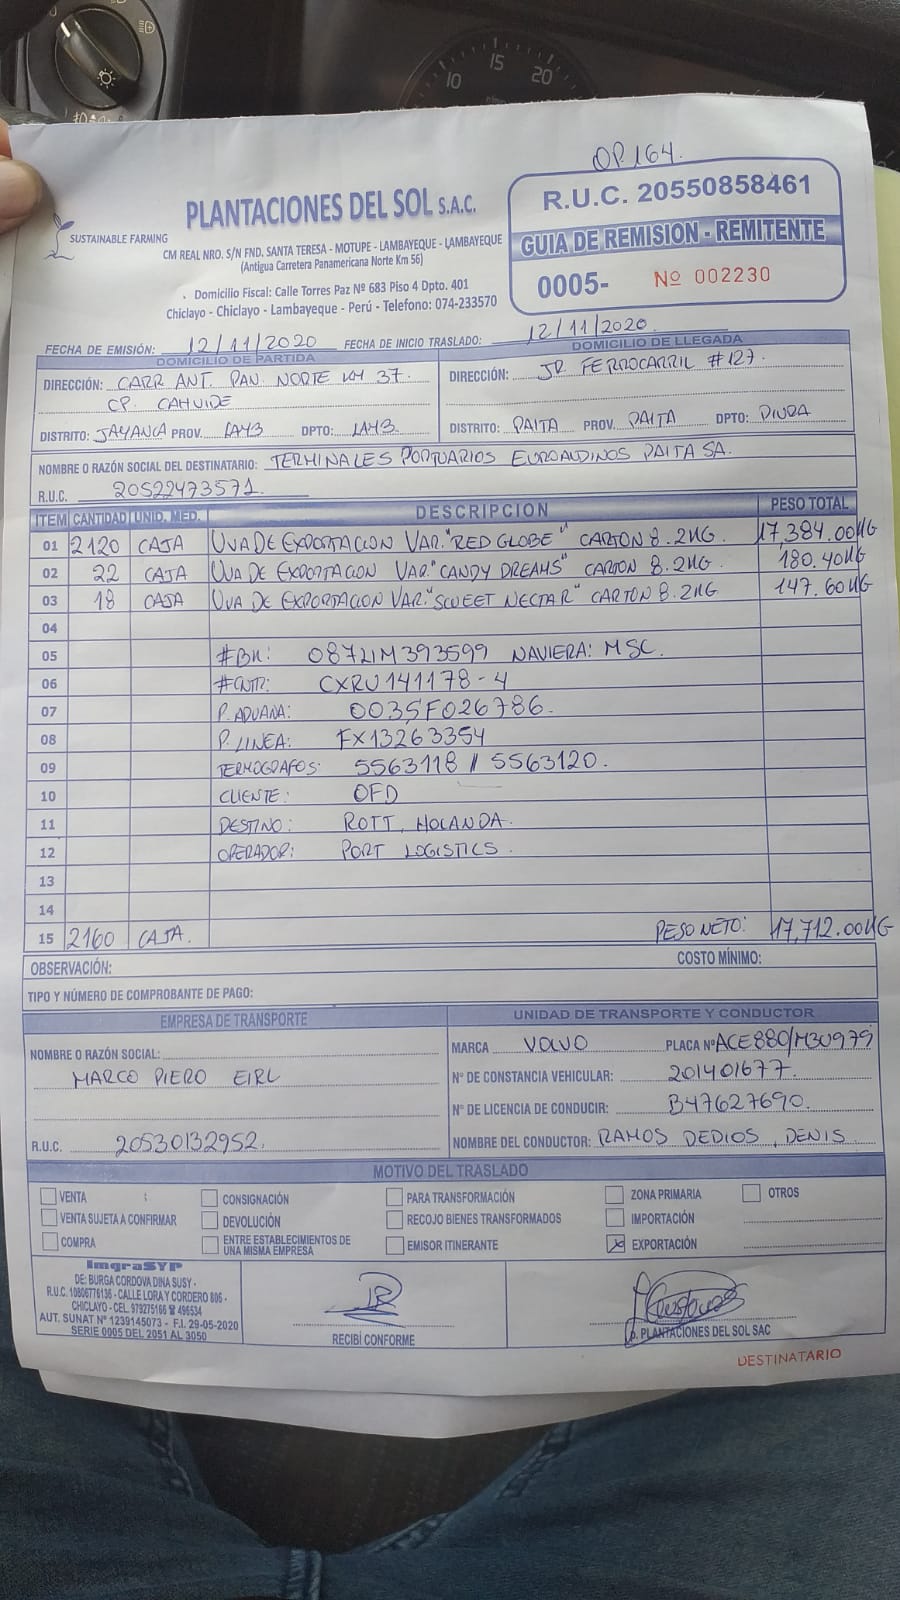 10 15 20
OP.164.
SUSTAINABLE FARMING
PLANTACIONES DEL SOL S.A.C.
CM REAL NRO. S/N FND. SANTA TERESA - MOTUPE - LAMBAYEQUE - LAMBAYEQUE
(Antigua Carretera Panamericana Norte Km 56)
. Domicilio Fiscal: Calle Torres Paz Nº 683 Piso 4 Dpto. 401
Chiclayo - Chiclayo - Lambayeque - Perú - Telefono: 074-233570
R.U.C. 20550858461
GUIA DE REMISION - REMITENTE
0005- Nº 002230
FECHA DE EMISIÓN: 12/11/2020 FECHA DE INICIO TRASLADO: 12/11/2020.
DOMICILIO DE PARTIDA
DIRECCIÓN: CARR ANT. PAN. NORTE KM 37.
CP. CAHUIDE
DISTRITO: JAYANCA PROV. LAMB DPTO: LAMB.
DOMICILIO DE LLEGADA
DIRECCIÓN: JR FERROCARRIL #127.
DISTRITO: PAITA PROV. PAITA DPTO: PIURA
NOMBRE O RAZÓN SOCIAL DEL DESTINATARIO: TERMINALES PORTUARIOS EUROANDINOS PAITA SA.
R.U.C. 20522473571.
ITEM CANTIDAD UNID. MED. DESCRIPCION PESO TOTAL
01 2120 CAJA UVA DE EXPORTACION VAR. "RED GLOBE" CARTON 8.2KG 17,384.00KG
02 22 CAJA UVA DE EXPORTACION VAR. "CANDY DREAMS" CARTON 8.2KG 180.40KG
03 18 CAJA UVA DE EXPORTACION VAR. "SWEET NECTAR" CARTON 8.2KG 147.60KG
04
05 #BK: 087LIM393599 NAVIERA: MSC.
06 #CNTR: CXRU141178-4
07 P. ADUANA: 0035F026786.
08 P. LINEA: FX13263354
09 TERMOGRAFOS: 5563118 // 5563120.
10 CLIENTE: OFD
11 DESTINO: ROTT, HOLANDA.
12 OPERADOR: PORT LOGISTICS.
13
14
15 2160 CAJA. PESO NETO: 17,712.00KG
OBSERVACIÓN: COSTO MÍNIMO:
TIPO Y NÚMERO DE COMPROBANTE DE PAGO:
EMPRESA DE TRANSPORTE
NOMBRE O RAZÓN SOCIAL:
MARCO PIERO EIRL
R.U.C. 20530132952.
UNIDAD DE TRANSPORTE Y CONDUCTOR
MARCA VOLVO PLACA Nº ACE880/M3U979
N° DE CONSTANCIA VEHICULAR: 201401677.
N° DE LICENCIA DE CONDUCIR: B47627690.
NOMBRE DEL CONDUCTOR: RAMOS DEDIOS, DENIS
MOTIVO DEL TRASLADO
VENTA CONSIGNACIÓN PARA TRANSFORMACIÓN ZONA PRIMARIA OTROS
VENTA SUJETA A CONFIRMAR DEVOLUCIÓN RECOJO BIENES TRANSFORMADOS IMPORTACIÓN
COMPRA ENTRE ESTABLECIMIENTOS DE UNA MISMA EMPRESA EMISOR ITINERANTE X EXPORTACIÓN
ImgraSYP
DE: BURGA CORDOVA DINA SUSY -
R.U.C. 10806776136 - CALLE LORA Y CORDERO 806 -
CHICLAYO - CEL. 979275166 ☎ 496534
AUT. SUNAT Nº 1239145073 - F.I. 29-05-2020
SERIE 0005 DEL 2051 AL 3050
RECIBÍ CONFORME
p. PLANTACIONES DEL SOL SAC
DESTINATARIO